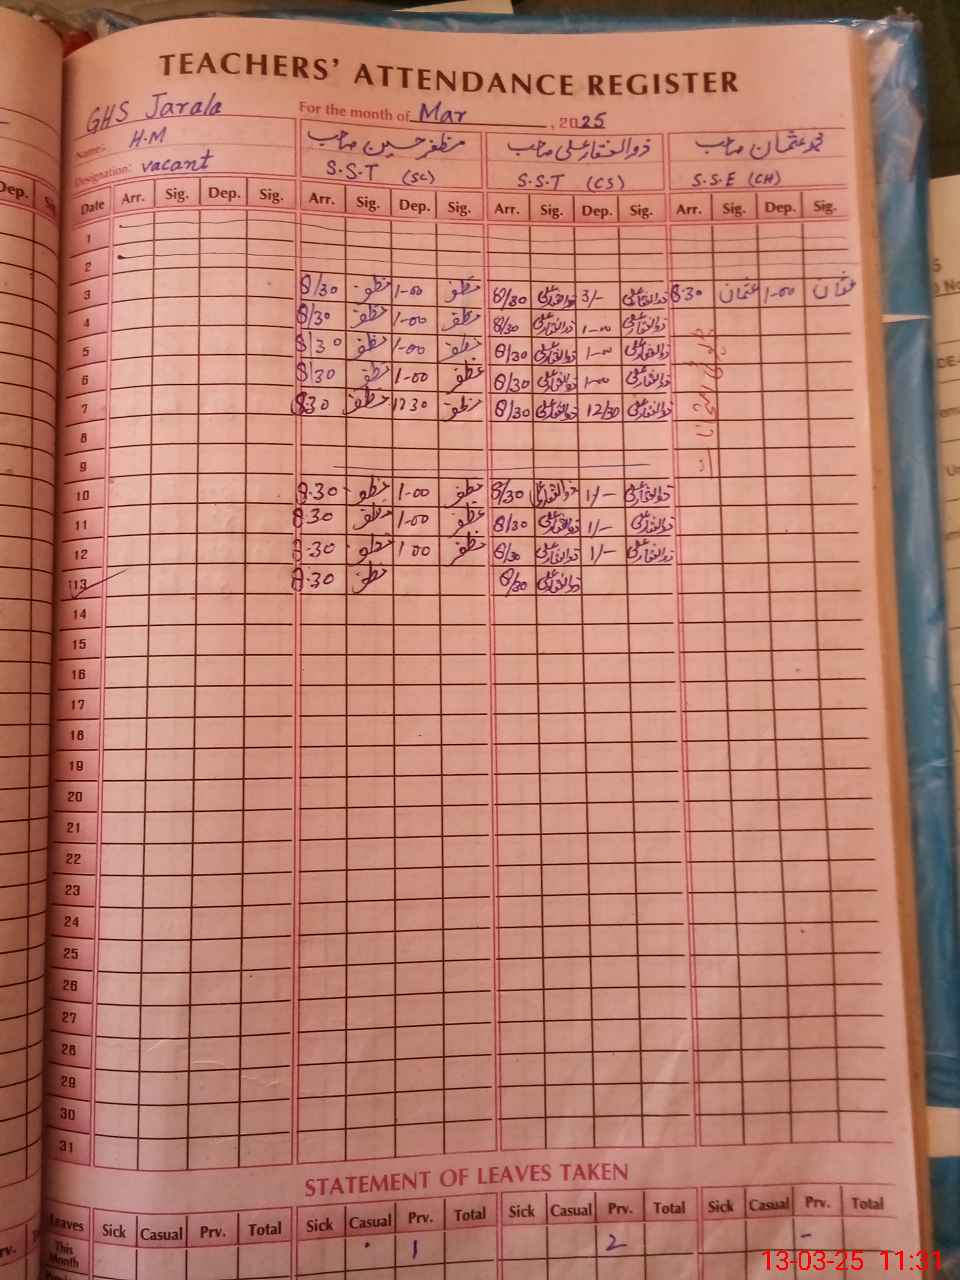 TEACHERS' ATTENDANCE REGISTER
GHS Jarala For the month of Mar, 2025
Name: H.M مظفر حسین صاحب ذوالفقار علی صاحب محمد عثمان صاحب
Designation: vacant S.S.T (SC) S.S.T (CS) S.S.E (CH)
Date Arr. Sig. Dep. Sig. Arr. Sig. Dep. Sig. Arr. Sig. Dep. Sig. Arr. Sig. Dep. Sig.
1
2
3 8/30 مظفر 1-00 مظفر 8/30 ذوالفقار علی 3/- ذوالفقار علی 8-30 عثمان 1-00 عثمان
4 8/30 مظفر 1-00 مظفر 8/30 ذوالفقار علی 1-00 ذوالفقار علی
5 8/30 مظفر 1-00 مظفر 8/30 ذوالفقار علی 1-00 ذوالفقار علی
6 8/30 مظفر 1-00 مظفر 8/30 ذوالفقار علی 1-00 ذوالفقار علی
7 830 مظفر 1230 مظفر 8/30 ذوالفقار علی 12/30 ذوالفقار علی
8
9
10 8-30 مظفر 1-00 مظفر 8/30 ذوالفقار علی 1/- ذوالفقار علی
11 8-30 مظفر 1-00 مظفر 8/30 ذوالفقار علی 1/- ذوالفقار علی
12 8-30 مظفر 1-00 مظفر 8/30 ذوالفقار علی 1/- ذوالفقار علی
13 8-30 مظفر 8/30 ذوالفقار علی
14
15
16
17
18
19
20
21
22
23
24
25
26
27
28
29
30
31
STATEMENT OF LEAVES TAKEN
Leaves Sick Casual Prv. Total Sick Casual Prv. Total Sick Casual Prv. Total Sick Casual Prv. Total
This Month 1 2 -
13-03-25 11:31